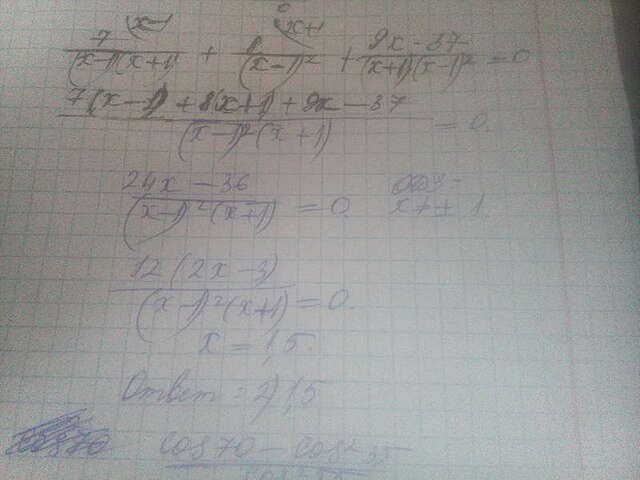 x-1 x+1
7/((x-1)(x+1)) + 8/(x-1)² + (9x-37)/((x+1)(x-1)²) = 0
(7(x-1) + 8(x+1) + 9x - 37)/((x-1)²(x+1)) = 0.
(24x - 36)/((x-1)²(x+1)) = 0. ОДЗ
x ≠ ± 1.
12(2x-3)/((x-1)²(x+1)) = 0.
x = 1,5.
Ответ: 2) 1,5
cos70 - cos²35